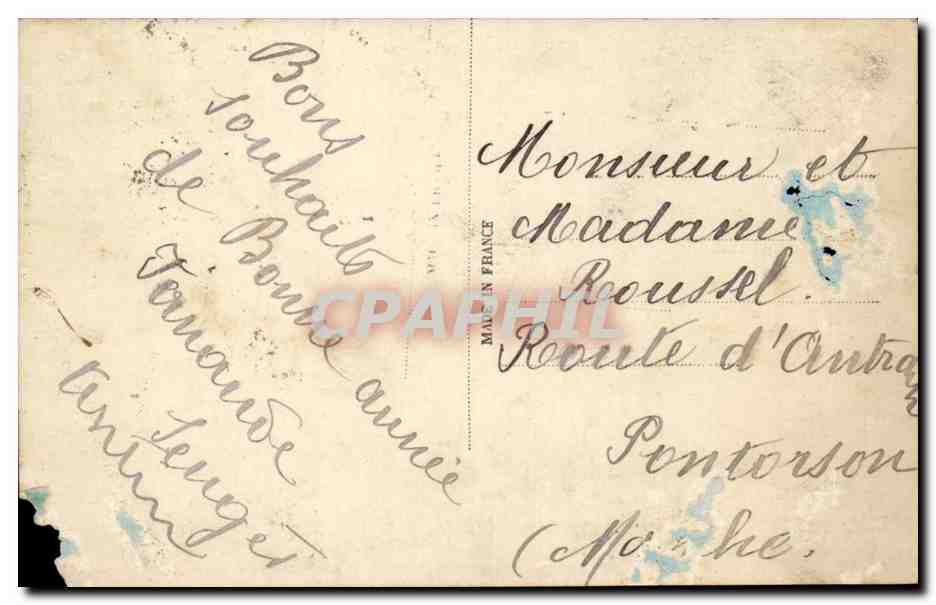 Bons
souhaits
de Bonne année
Fernande
MADE IN FRANCE
Monsieur et
Madame
Roussel.
Route d'Antrain
Pontorson
(Manche.
CPAPHIL